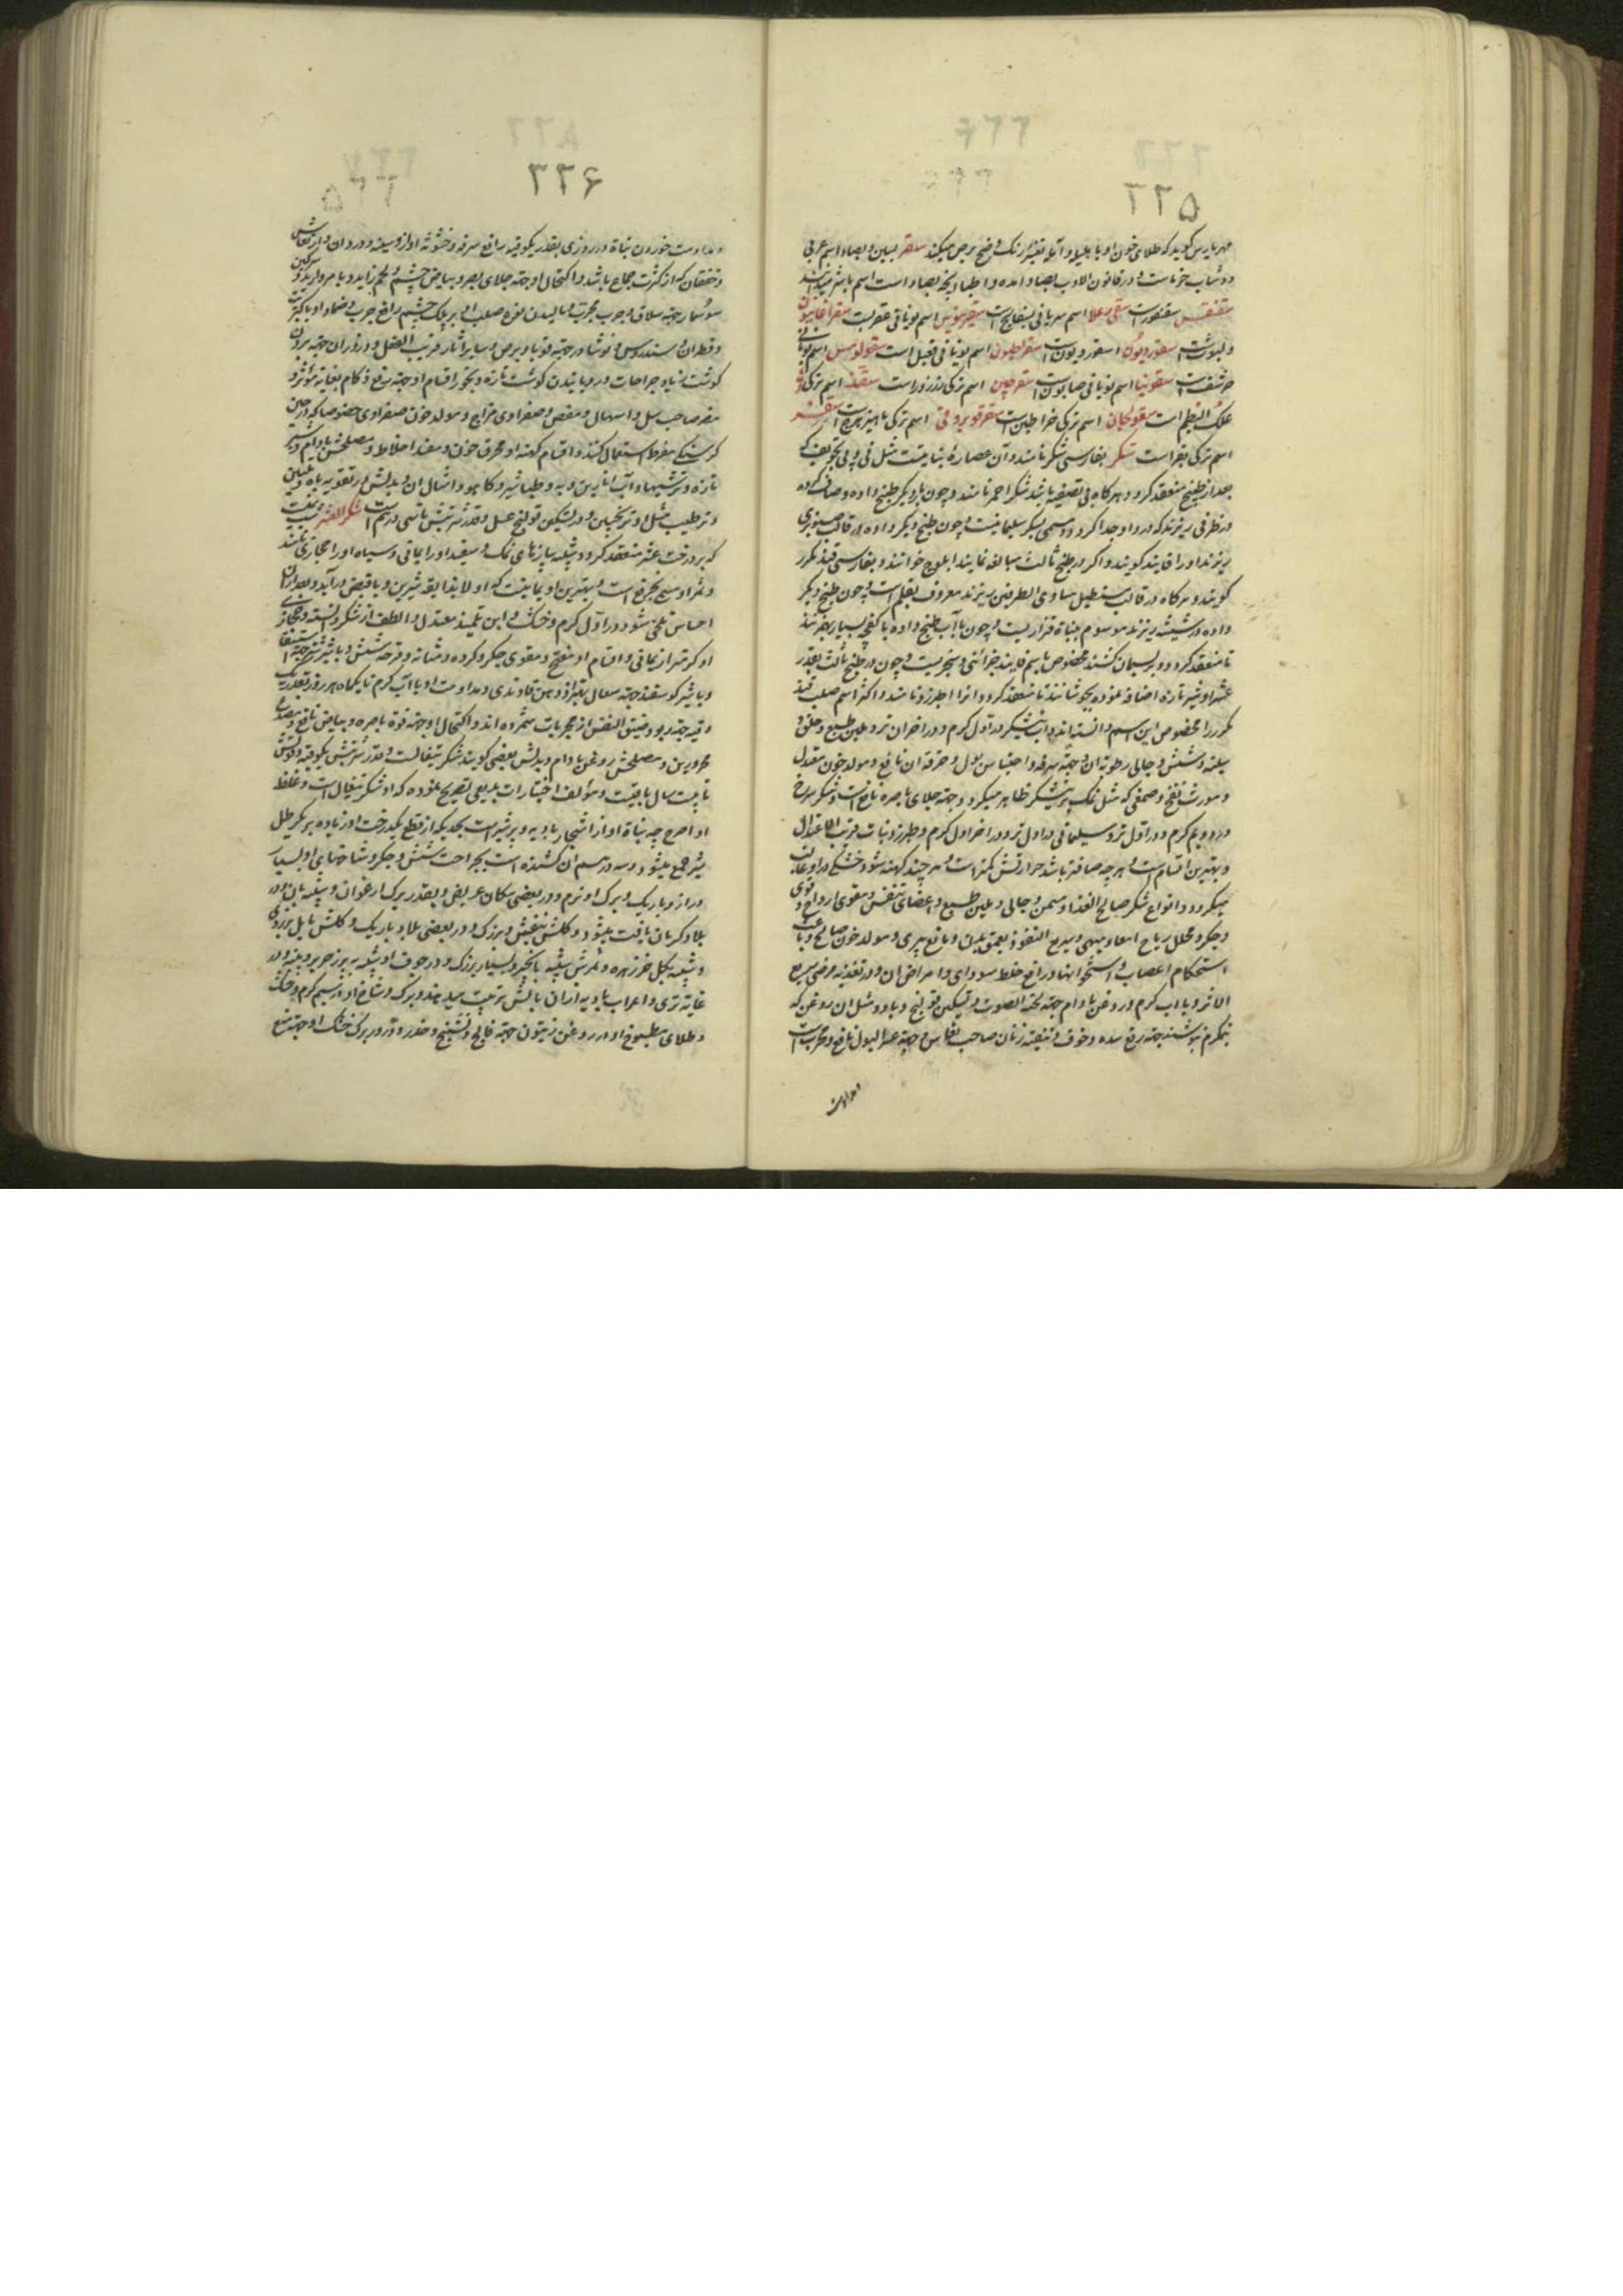 ۲۲۵
مهریارس گوید که طلای خون او با بلیله و آمله تغییر رنگ وضح برص میکند سقر بسین و بصاد اسم عربی
دوشاب خرماست و در قانون الادب بصاد آمده و اطبا
سقنقس سقنقور است اسم سریانی بسفایج است اسم یونانی عقربست
و لبوب است سقوردیون اسقوردیون است سقراطیون اسم یونانی است سقولوس اسم یونانی
حرشف است سقونیا اسم یونانی صابون است سقرچین اسم ترکی زرزور است سقز اسم ترکی
علک البطم است سقولجان اسم ترکی خراطین است سقرقویروقی اسم ترکی ماهیزهرج است سقر
اسم ترکی بقر است سکر بفارسی شکر نامند و آن عصارهٔ نباتیست مثل نی و بی تجویف که
بعد از طبخ منعقد گردد و هرگاه بی تصفیه باشد شکر احمر نامند و چون بار دیگر طبخ داده و صاف کرده
در ظرفی ریزند که درد او جدا گردد و مسمی بسکر سلیمانیست و چون طبخ دیگر داده در قالب صنوبری
ریزند او را فانید گویند و اگر در طبخ ثالث مبالغه نمایند ابلوج خوانند و بفارسی قند مکرر
گویند و هرگاه در قالب مستطیل مساوی الطرفین ریزند معروف بقلم است و چون طبخ دیگر
داده در شیشه ریزند موسوم بنبات قزازیست و چون با آب طبخ داده با کفچه بسیار بزنند
تا منعقد گردد و بریسمان کشند مخصوص باسم فانید خزائنی و سنجریست و چون در طبخ ثالث بقدر
عشر او شیر تازه اضافه نموده بجوشانند تا منعقد گردد و آنرا طبرزد نامند و اکثر اسم صلب قند
مکرر را مخصوص این اسم دانسته‌اند و آب نیشکر در اول گرم و در آخر آن تر و ملین طبع و حلق و
سینه و شش و جالی رطوبه آن و جهته سرفه و احتباس بول و حرقه آن نافع و مولد خون معتدل
و مورث نفخ و صمغی که مثل نمک بر نیشکر ظاهر میگردد جهته جلای باصره نافع است و شکر سرخ
در دویم گرم و در اول تر و سلیمانی در اول تر و در آخر اول گرم و طبرزد و نبات قریب الاعتدال
و بهترین اقسام است و هر چه صافتر باشد حرارتش کمتر است و هر چند کهنه شود خشکی در او غالب
میگردد و انواع شکر صالح الغذا و مسمن و جالی و ملین طبع و اعضای تنفس و مقوی ارواح و قوی
و جگر و محلل ریاح امعا و مبهی و سریع النفوذ بعمق بدن و مانع پیری و مولد خون صالح و باعث
استحکام اعصاب و استخوانها و رافع خلط سوداوی و امراض آن و در تغذیه مرضی سریع
الاثر و با آب گرم و روغن بادام جهته بحة الصوت و تسکین قولنج و با دو مثل آن روغن که
نیمگرم بنوشند جهته رفع سده و خوف و تنقیه زنان صاحب نفاس و جهته عسر البول نافع و مجرب است
و مداومت
۲۲۶
و مداومت خوردن نبات در روزی بقدر یکوقیه رافع سرفه و خشونة آواز و سینه و درد آن و ارتعاش
و خفقان که از کثرت جماع باشد و اکتحال او جهته جلای بصر و بیاض چشم و لحم زاید و با مروارید و سرگین
سوسمار جهته سلاق و جرب مجرب و مالیدن نوع صلب او بر پلک چشم رافع جرب و ضماد او با کبریت
و قطران و سندروس و نوشادر جهته قوبا و برص و سایر آثار قریب الفعل و در زوران جهته بردن
گوشت زیاد و جراحات و رویانیدن گوشت تازه و بخور اقسام او جهته رفع زکام بغایه مؤثر و
مضر صاحب سل و اسهال و مغص و صفراوی مزاج و مولد خون صفراوی خصوصا که در حین
گرسنگی مفرط استعمال کنند و اقسام کهنه او محرق خون و مفسد اخلاط و مصلحش بادام و شیر
تازه و ترشیها و آب انارین و به و طباشیر و کاهو و امثال آن و بدلش در تقویه باه و تلیین
و ترطیب مثل او ترنجبین و در تسکین قولنج عسل و قدر شربتش تا سی درهم است سکر العشر
که بر درخت عشر منعقد گردد و شبیه بپارهای نمک و سفید او را یمانی و سیاه او را حجازی نامند
احساس تلخی شود در اول گرم و خشک و ابن تلمیذ معتدل و الطف از شکر دانسته و حجازی
او گرمتر از یمانی و اقسام او مفتح و مقوی جگر و گرده و مثانه و قرحه شش و با شیر شتر جهته استسقا
و با شیر گوسفند جهته سعال
وقیه جهته ربو و ضیق النفس از مجربات شمرده‌اند و اکتحال او جهته قوة باصره و بیاض نافع و مصدع
محرورین و مصلحش روغن بادام و بدلش بعضی گویند شکر تیغالست و قدر شربتش یکوقیه و قوتش
تا بیست سال باقیست و مؤلف اختیارات بدیعی تصریح نموده که او شکر تیغال است و غلط
شیر جمع میشود و سه درهم آن کشنده است بجراحت شش و جگر و شاخهای او بسیار
دراز و باریک و برگ او نرم و در بعضی مکان عریض و بقدر برگ ارغوان
بلاد کرمان یافت میشود و گلش بنفش و بزرگ و در بعضی بلاد باریک و گلش مایل بزردی
و شبیه بگل خرزهره و ثمرش شبیه بانجیر و بسیار بزرگ و در جوف او شبیه به پرز حریر و پنبه و در
غایة نرمی و اعراب بادیه از آن بالش ترتیب میدهند و برگ و شاخ او در سیم گرم و خشک
و طلای مطبوخ او در روغن زیتون جهته فالج و تشنج و خدر و ذرور برگ خشک او جهته منع